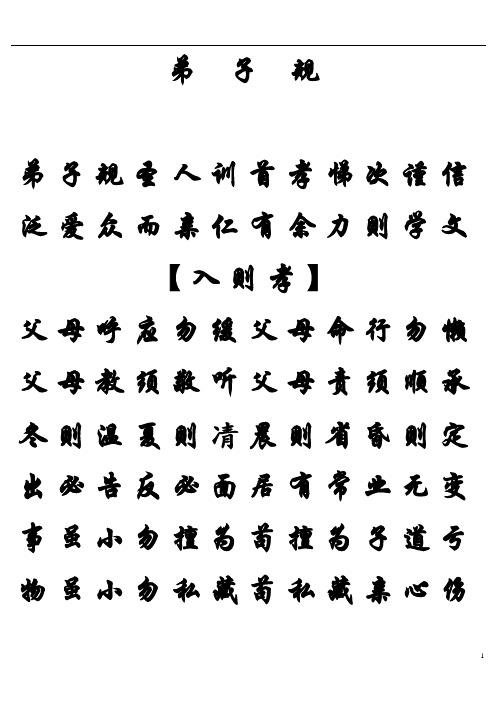 弟 子 规
弟子规圣人训首孝悌次谨信
泛爱众而亲仁有余力则学文
【入则孝】
父母呼应勿缓父母命行勿懒
父母教须敬听父母责须顺承
冬则温夏则凊晨则省昏则定
出必告反必面居有常业无变
事虽小勿擅为苟擅为子道亏
物虽小勿私藏苟私藏亲心伤
1